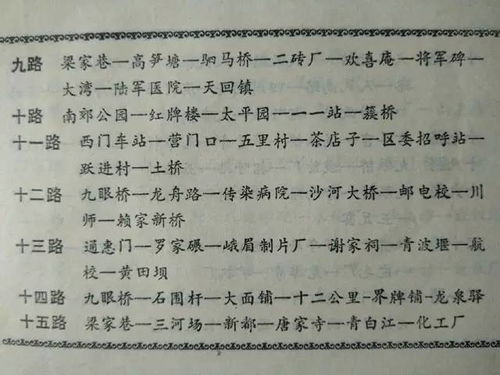 九路 梁家巷—高笋塘—驷马桥—二砖厂—欢喜庵—将军碑—
大湾—陆军医院—天回镇
十路 南郊公园—红牌楼—太平园—一一站—簇桥
十一路 西门车站—营门口—五里村—茶店子—区委招呼站—
跃进村—土桥
十二路 九眼桥—龙舟路—传染病院—沙河大桥—邮电校—川
师—赖家新桥
十三路 通惠门—罗家碾—峨眉制片厂—谢家祠—青波堰—航
校—黄田坝
十四路 九眼桥—石围杆—大面铺—十二公里-界牌铺-龙泉驿
十五路 梁家巷—三河场—新都—唐家寺—青白江—化工厂